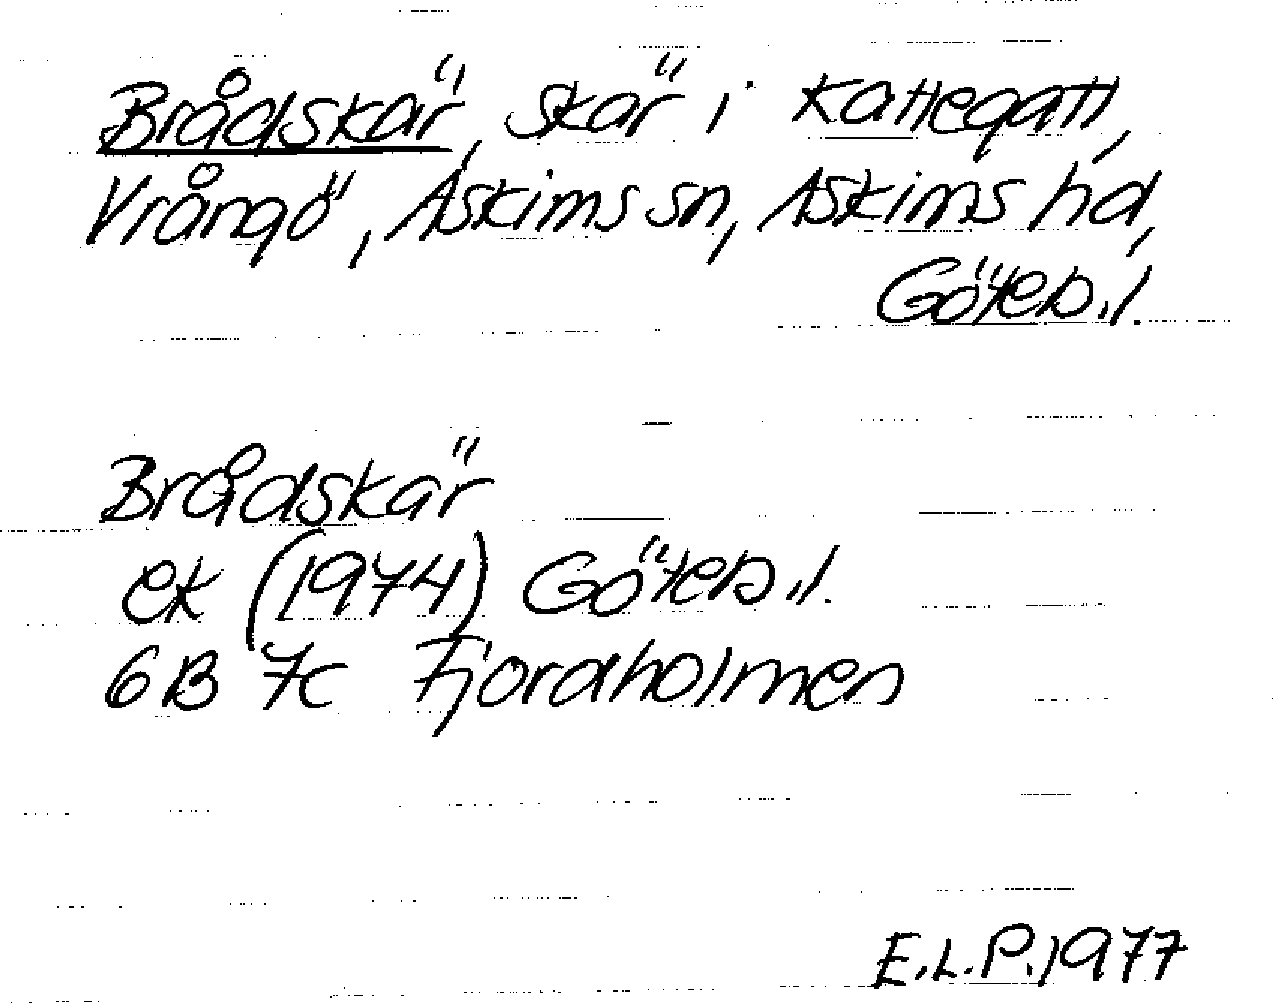 Brådskär, skär i Kattegatt,
Vrångö, Askims sn, Askims hd,
Göteb. l.
Brådskär
ek (1974) Göteb. l.
6B 7c Fjordholmen
E.L.P. 1977